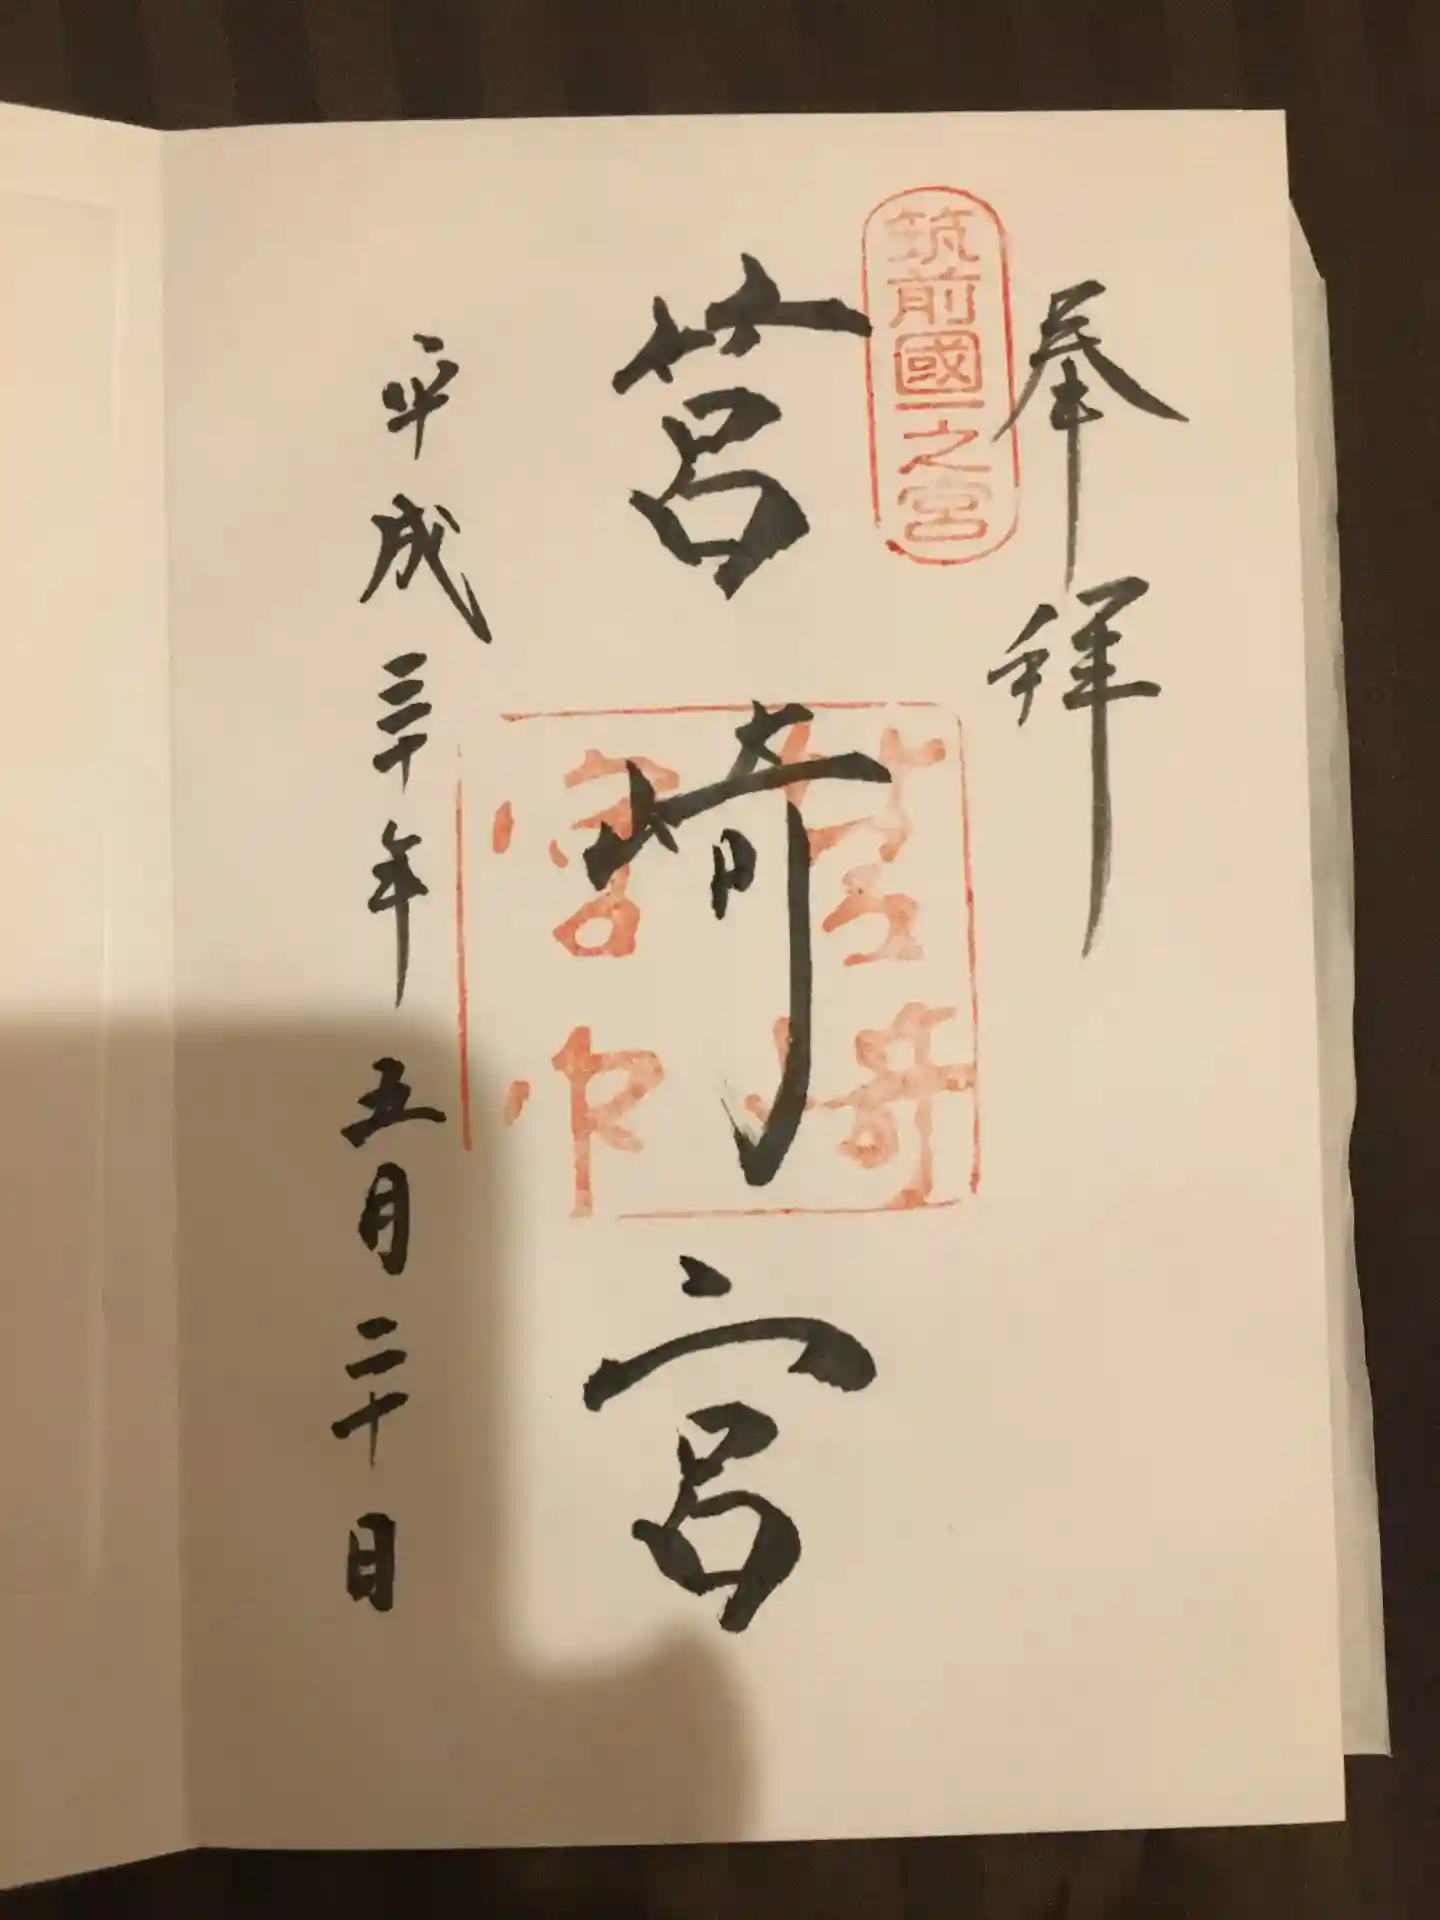 奉拜
筑前國一之宮
筥崎宮
筥崎宮印
平成三十年五月二十日